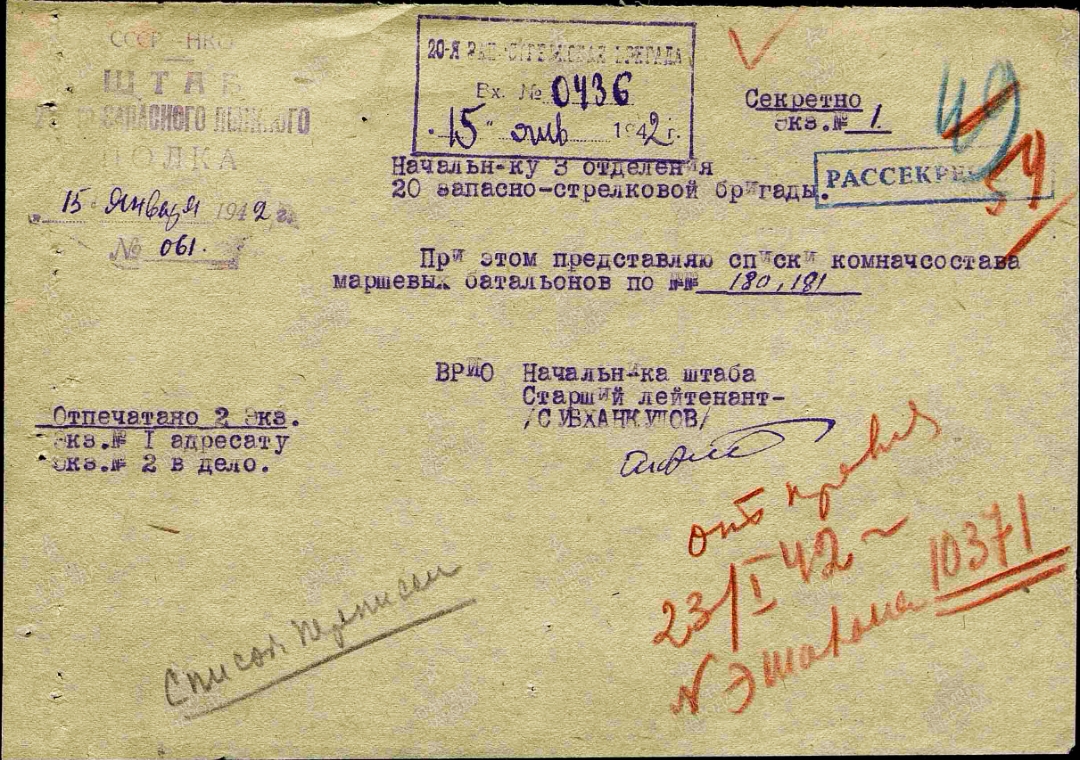 СССР НКО
ШТАБ
ЗАПАСНОГО ЛЫЖНОГО
ПОЛКА
15 Января 1942
№ 061.
20-Я ЗАП-СТРЕЛКОВАЯ БРИГАДА
Вх. № 0436
"15" янв 1942 г.
Секретно
Экз.№ 1
49
54
РАССЕКРЕ
Начальнику 3 отделения
20 запасно-стрелковой бригады.
При этом представляю списки комначсостава
маршевых батальонов по №№ 180,181
ВРИО Начальника штаба
Старший лейтенант-
/СУБХАНКУЛОВ/
Отпечатано 2 Экз.
Экз.№ I адресату
Экз.№ 2 в дело.
23/I 42
N Эшалона 10371
Список